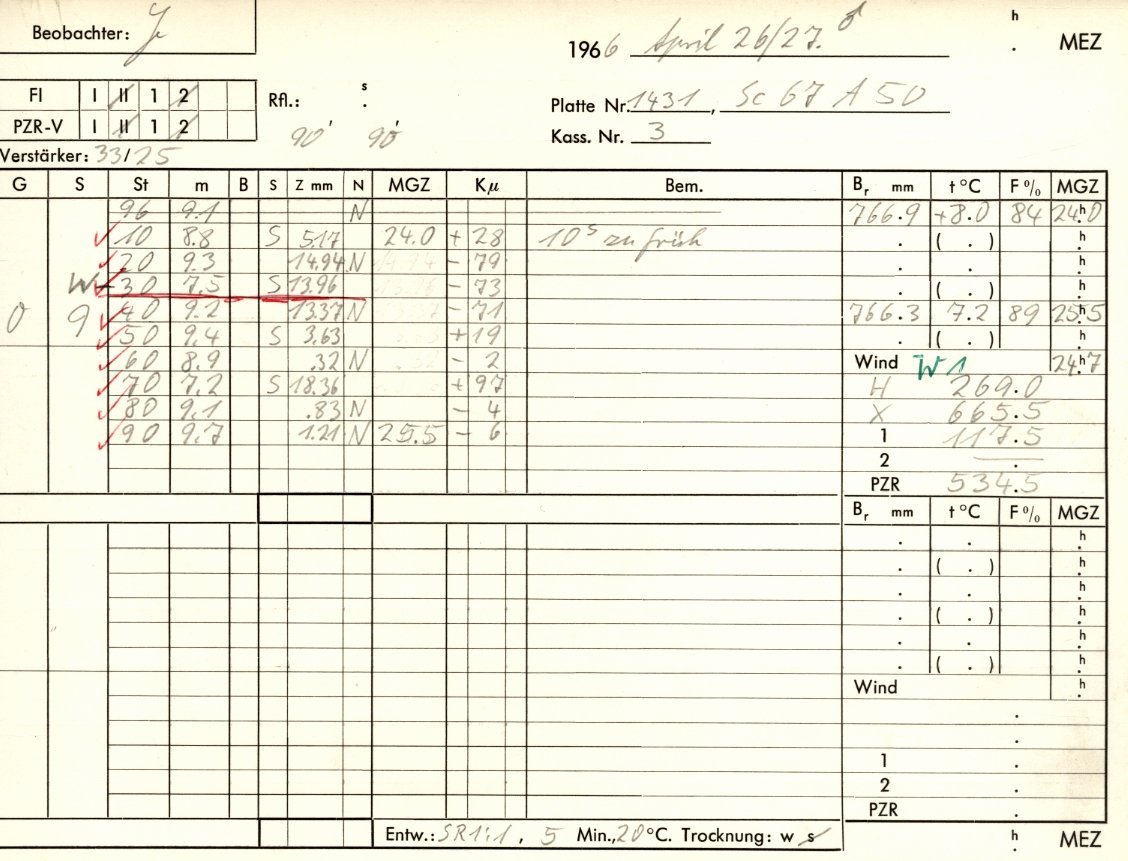 Beobachter:
1966 April 26/27. ♂ h . MEZ
FI I II 1 2
Rfl.: s .
Platte Nr. 1431, Sc 67 A 50
PZR-V I II 1 2
90' 90'
Kass. Nr. 3
Verstärker: 33/25
G S St m B S Z mm N MGZ Kμ Bem. Br mm t °C F % MGZ
96 9.1 N 766.9 +8.0 84 24h0
10 8.8 S 5.17 24.0 + 28 10s zu früh . ( . ) h
20 9.3 14.94 N - 79 . . h
W 30 7.5 S 13.96 - 73 . ( . ) h
0 9 40 9.2 13.37 N - 71 766.3 7.2 89 25h5
50 9.4 S 3.63 + 19 . ( . ) h
60 8.9 .32 N - 2 Wind W 1 24h7
70 7.2 S 18.36 + 97 H 269.0
80 9.1 .83 N - 4 X 665.5
90 9.7 1.21 N 25.5 - 6 1 117.5
2 .
PZR 534.5
Br mm t °C F % MGZ
. . h
. ( . ) h
. . h
. ( . ) h
. . h
. ( . ) h
Wind h
.
.
1 .
2 .
PZR .
Entw.: SR1:1, 5 Min., 20 °C. Trocknung: w s h . MEZ